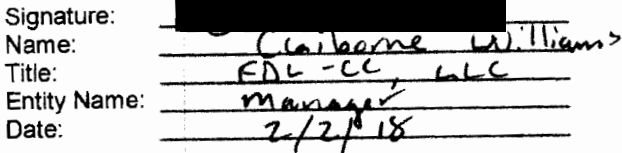 Signature:
Name: Claiborne Williams
Title: FDL-CC, LLC
Entity Name: Manager
Date: 2/2/18